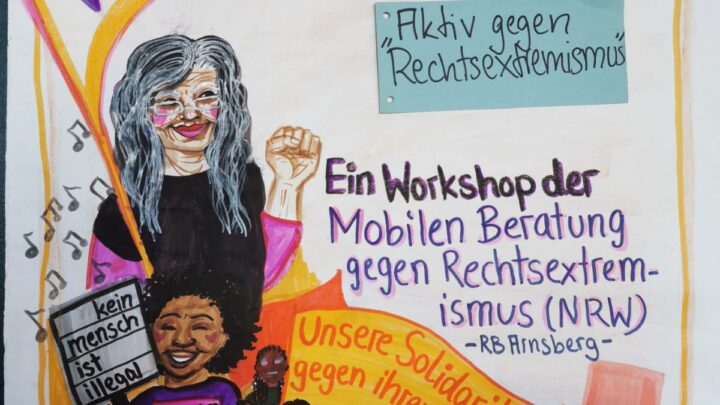 Aktiv gegen
"Rechtsextremismus"
Ein Workshop der
Mobilen Beratung
gegen Rechtsextrem-
ismus (NRW)
-RB Arnsberg-
kein
mensch
ist
illegal
Unsere
gegen